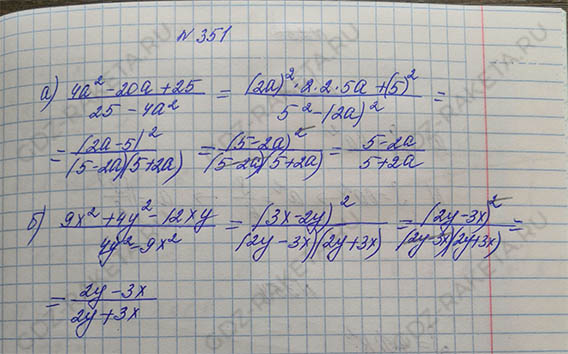 N 351
а) (4a² - 20a + 25)/(25 - 4a²) = ((2a)² · 2 · 2 · 5a + (5)²)/(5² - (2a)²) =
= (2a-5)²/((5-2a)(5+2a)) = (5-2a)²/((5-2a)(5+2a)) = (5-2a)/(5+2a)
б) (9x² + 4y² - 12xy)/(4y² - 9x²) = (3x-2y)²/((2y-3x)(2y+3x)) = (2y-3x)²/((2y-3x)(2y+3x)) =
= (2y-3x)/(2y+3x)
GDZ-RAKETA.RU